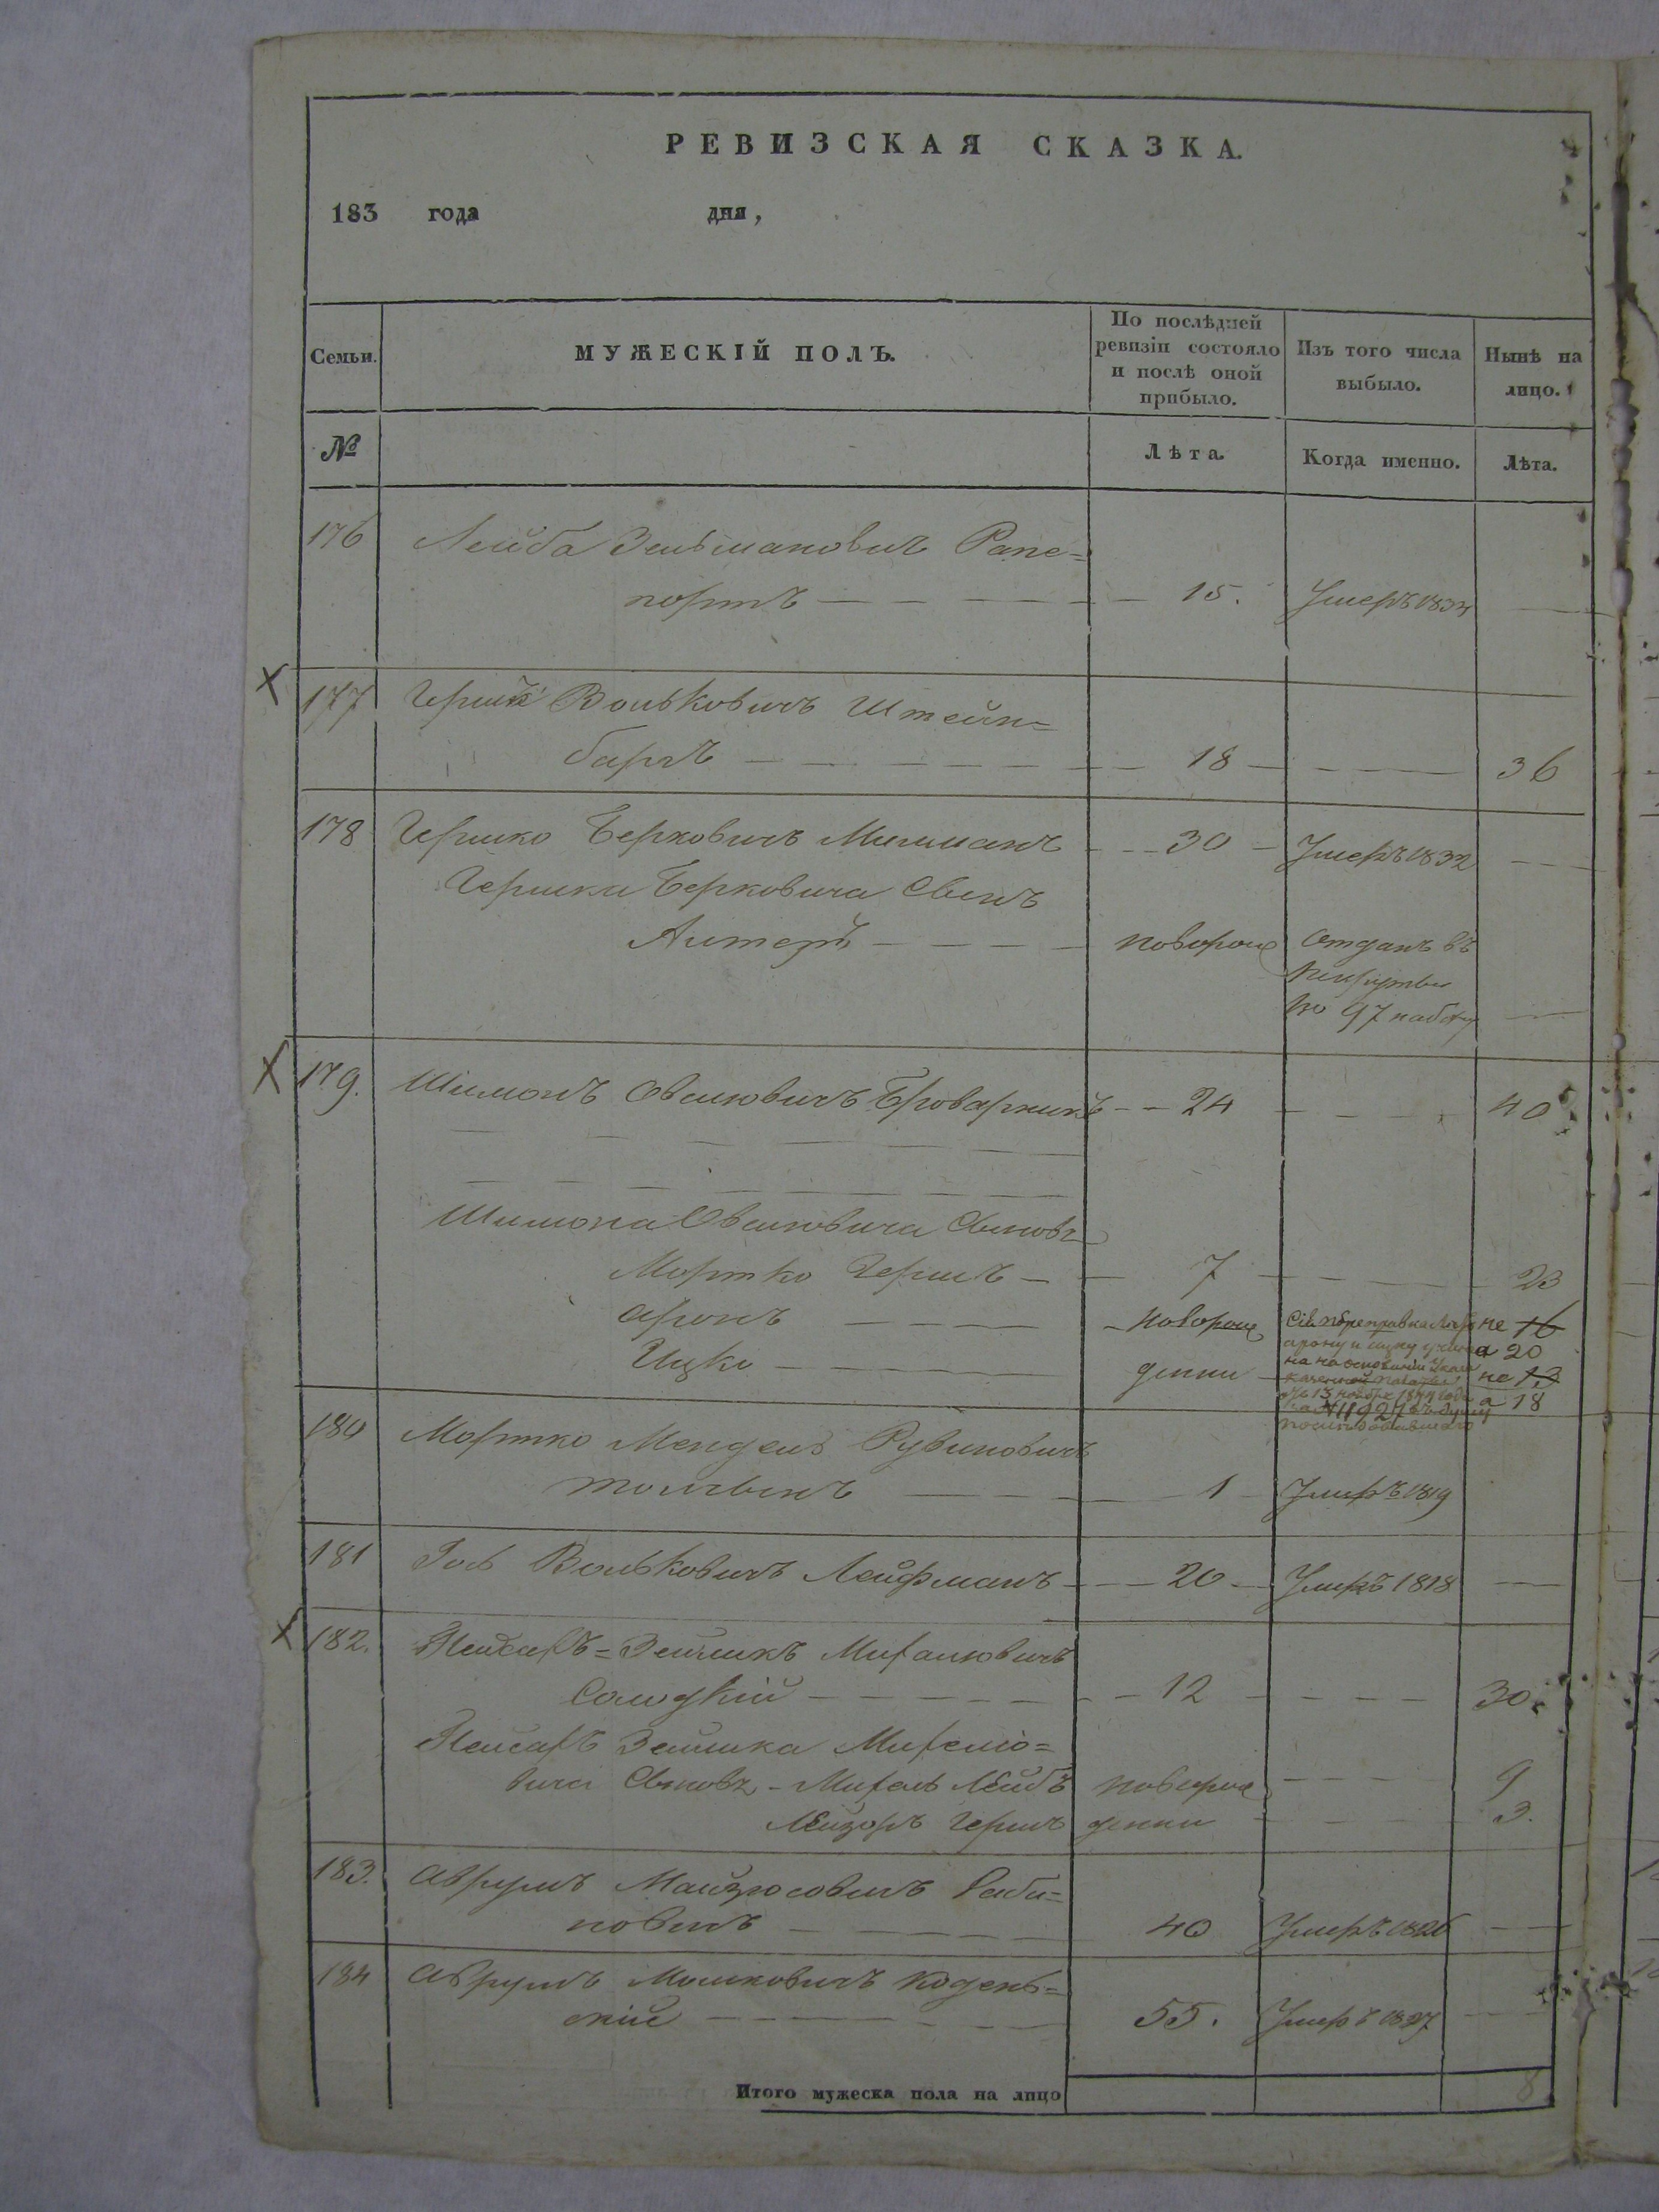 РЕВИЗСКАЯ СКАЗКА.
183 года дня,
Семьи. МУЖЕСКІЙ ПОЛЪ. По послѣдней ревизіи состояло и послѣ оной прибыло. Изъ того числа выбыло. Нынѣ на лицо.
№ Лѣта. Когда именно. Лѣта.
176 Лейба Зельмановичъ Рапе=
портъ 15. Умеръ 1834
177 Вольковичъ Штейн=
баргъ 18 36
178 Гершко Берковичъ Мильманъ 30 Умеръ 1832
Гершка Берковича Сынъ
Алтеръ новорож Отданъ въ
рекруты
по 97 набору
179. Шимонъ Овсиовичъ Броварникъ 24 40
Шимона Овсиовича Сыновь
Мортко Гершъ 7 23
Аронъ новорож не 16
Ицко денни а 20
на основаніи Указа не 13
13 ноября 1844 года а 18
№ 11924
180 Мортко Мендель Рувиновичъ
1 Умеръ 1819
181 Вольковичъ Лейфманъ 20 Умеръ 1818
182. Пейсахъ=Зейликъ Михалиовичъ
Солодкій 12 30.
Пейсахъ Зейлика Михелио=
вича Сыновь Михель Лейбъ новорож 9
Лейзоръ Гершъ денни 3.
183. Аврумъ Раби=
новичъ 40 Умеръ 1826
184 Аврумъ Мошковичъ Кодень=
скій 55. Умеръ 1827
Итого мужеска пола на лицо 8